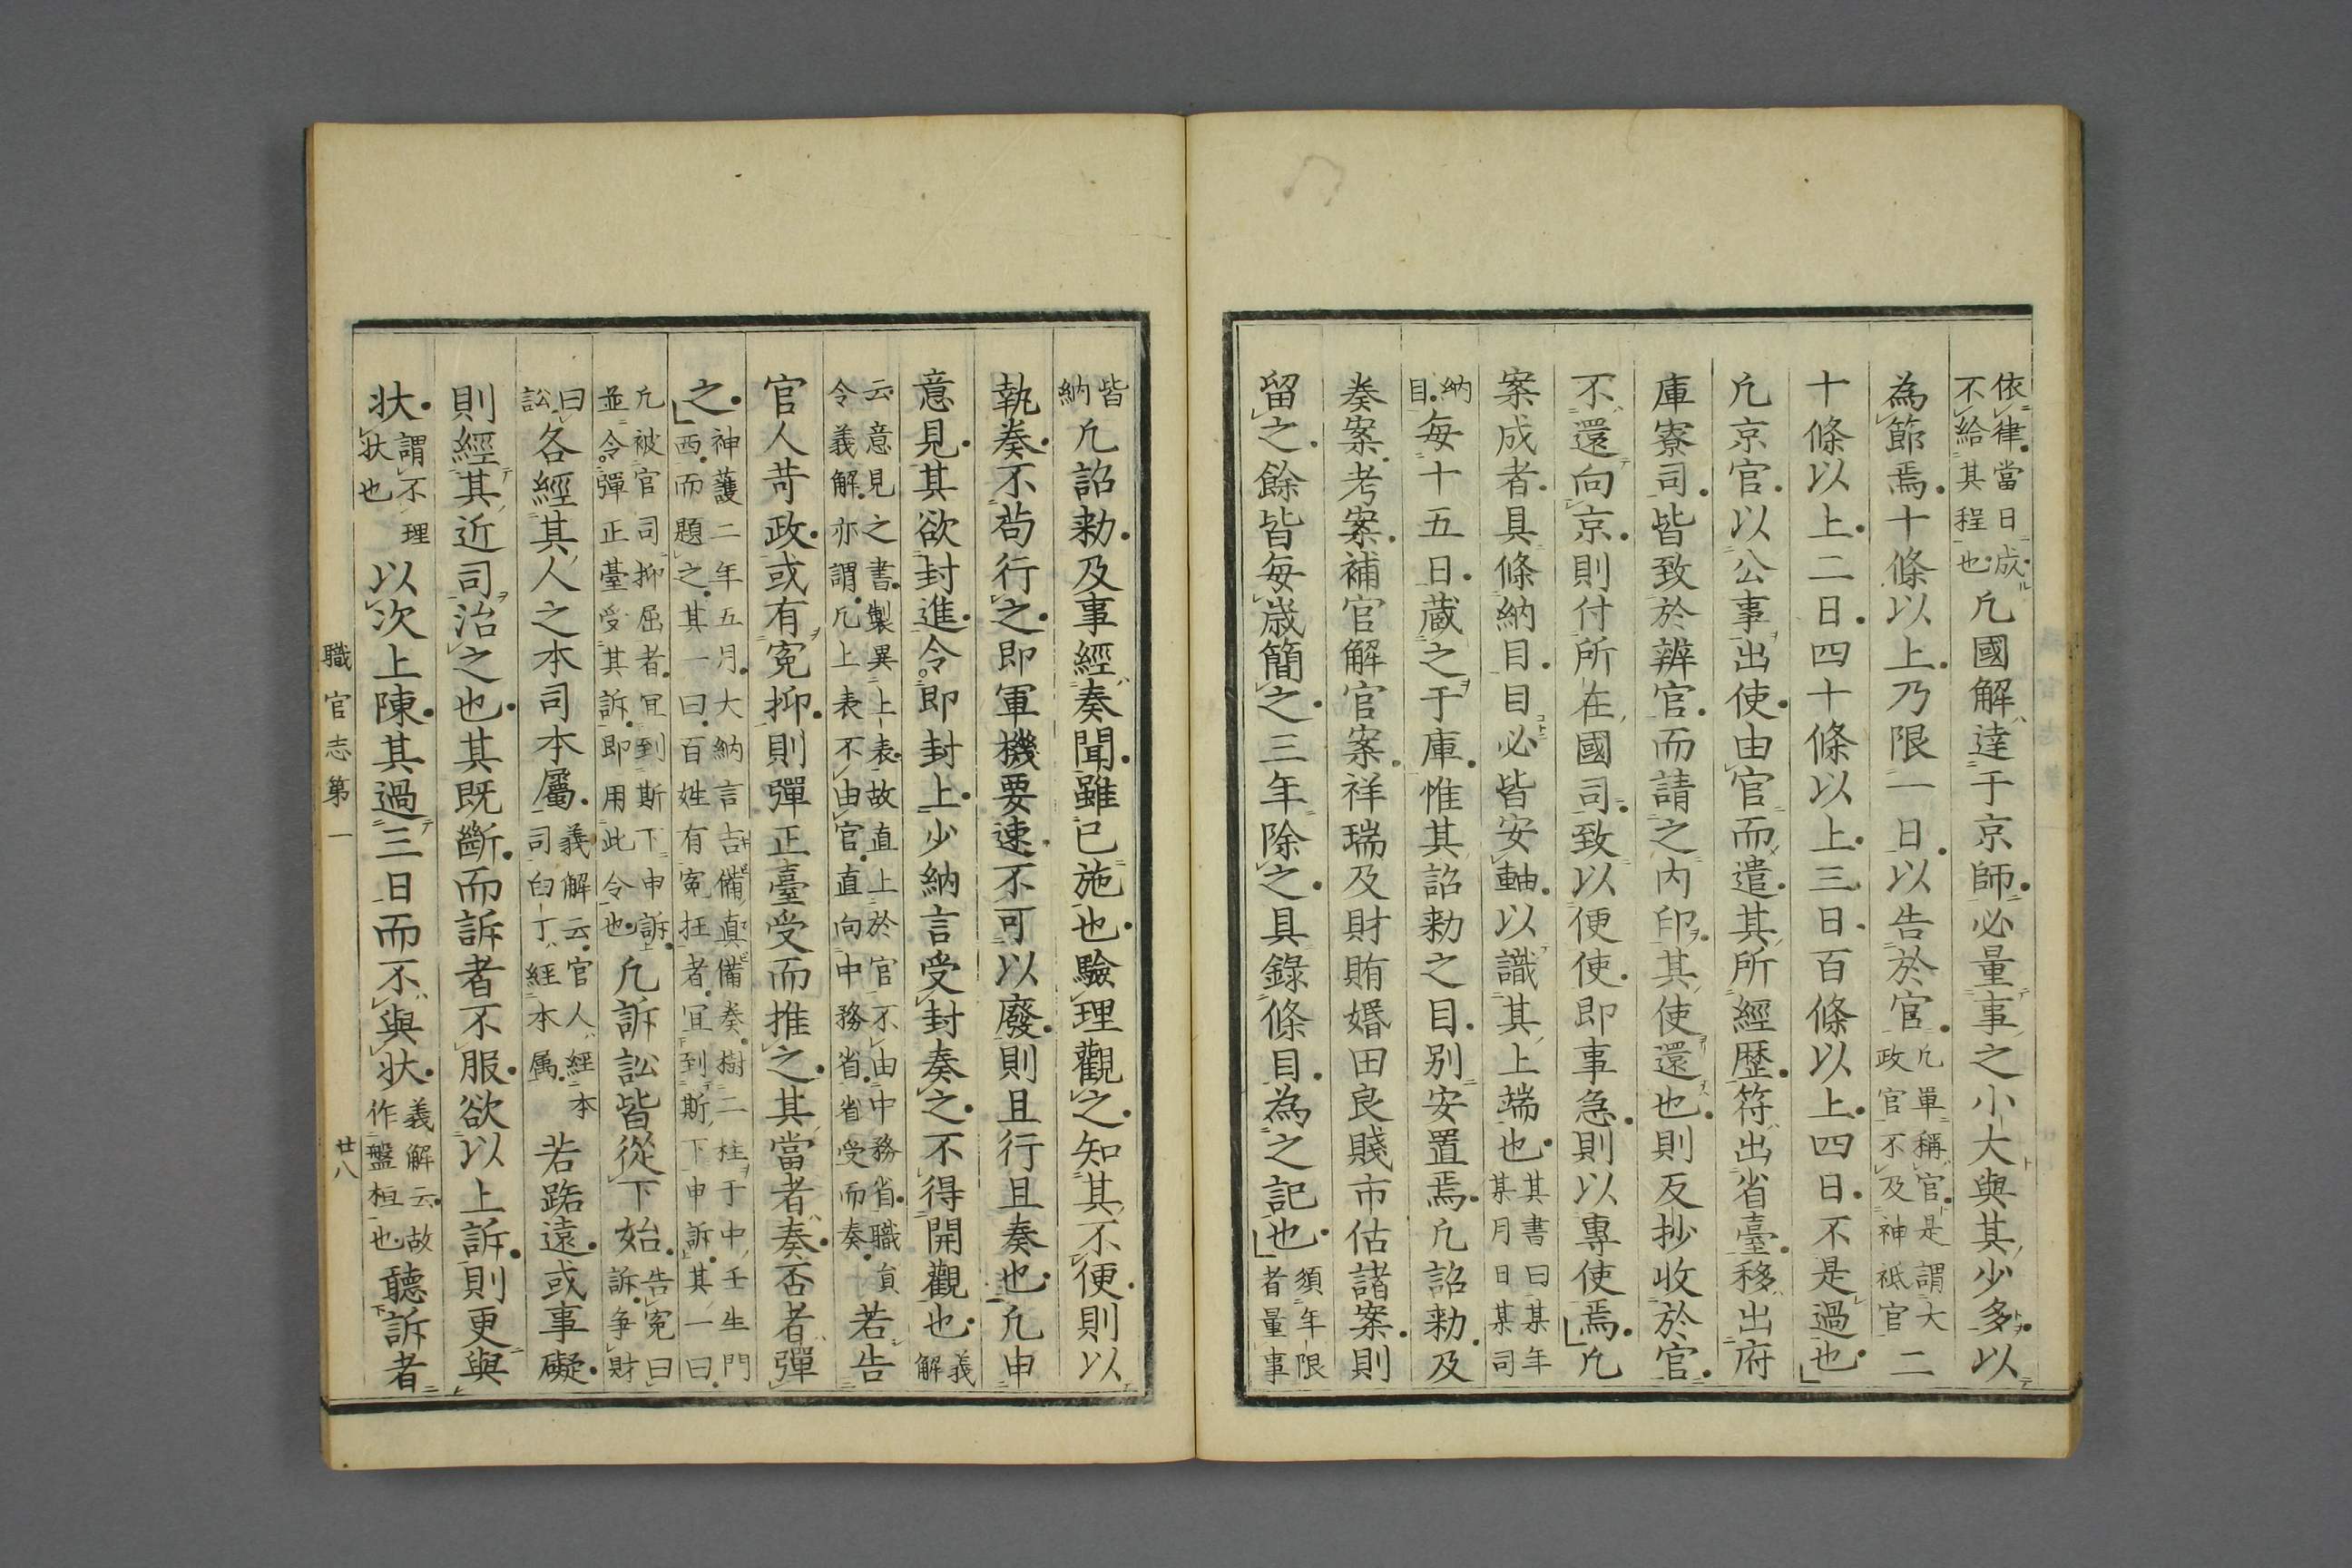 依律當日成不給其程也凡國解達于京師必量事之小大與其少多以
為節焉十條以上乃限一日以告於官凡單稱官是謂大政官不及神祇官二
十條以上二日四十條以上三日百條以上四日不是過也
凡京官以公事出使由官而遣其所經歷符出省臺移出府
庫寮司皆致於辨官而請之內印其使還也則反抄收於官
不還向京則付所在國司致以便使即事急則以專使焉凡
案成者具條納目目必皆安軸以識其上端也其書曰某年某月日某司
納目每十五日蔵之于庫惟其詔勅之目別安置焉凡詔勅及
奏案考案補官解官案祥瑞及財賄婚田良賤市估諸案則
留之餘皆每歲簡之三年除之具錄條目為之記也須年限者量事
皆納凡詔勅及事經奏聞雖已施也驗理觀之知其不便則以
執奏不苟行之即軍機要速不可以廢則且行且奏也凡申
意見其欲封進令即封上少納言受封奏之不得開觀也義解
云意見之書製異上表故直上於官不由中務省職員令義解亦謂凡上表不由官直向中務省省受而奏若告
官人苛政或有寃抑則彈正臺受而推之其當者奏否者彈
之神護二年五月大納言吉備真備奏樹二柱于中壬生門西而題之其一曰百姓有寃抂者宜到斯下申訴其一曰
凡被官司抑屈者宜到斯下申訴並令彈正臺受其訴即用此令也凡訴訟皆從下始告寃曰訴爭財
曰訟各經其人之本司本屬義解云官人經本司白丁經本属若踞遠或事礙
則經其近司治之也其既斷而訴者不服欲以上訴則更與
状謂不理状也以次上陳其過三日而不與状義解云故作盤桓也聽訴者
職官志第一
廿八